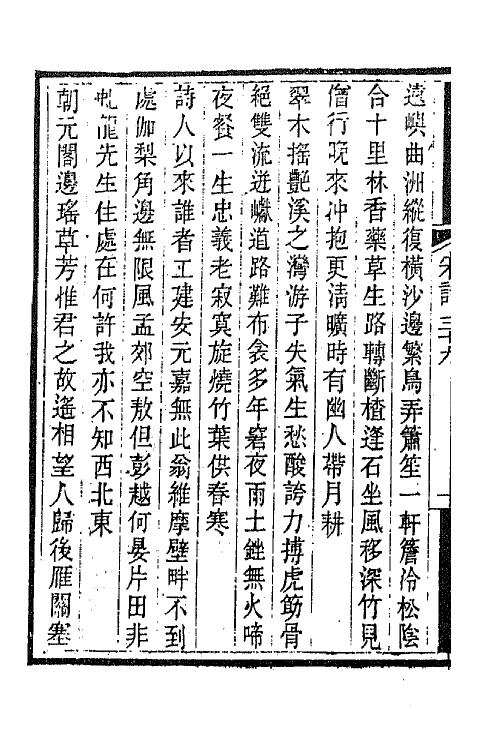 遠嶼曲洲縱復橫沙邊繁鳥弄簫笙一軒簷冷松陰
合十里林香藥草生路轉斷楂逢石坐風移深竹見
僧行晚來冲抱更淸曠時有幽人帶月耕
翠木搖艷溪之灣游子失氣生愁酸誇力搏虎筋骨
絕雙流迸巘道路難布衾多年窘夜雨土銼無火啼
夜餐一生忠義老寂寞旋燒竹葉供春寒
詩人以來誰者工建安元嘉無此翁維摩壁畔不到
處伽梨角邊無限風孟郊空敖但彭越何晏片田非
虬龍先生住處在何許我亦不知西北東
朝元閣邊瑤草芳惟君之故遙相望人歸後雁關塞
三十九